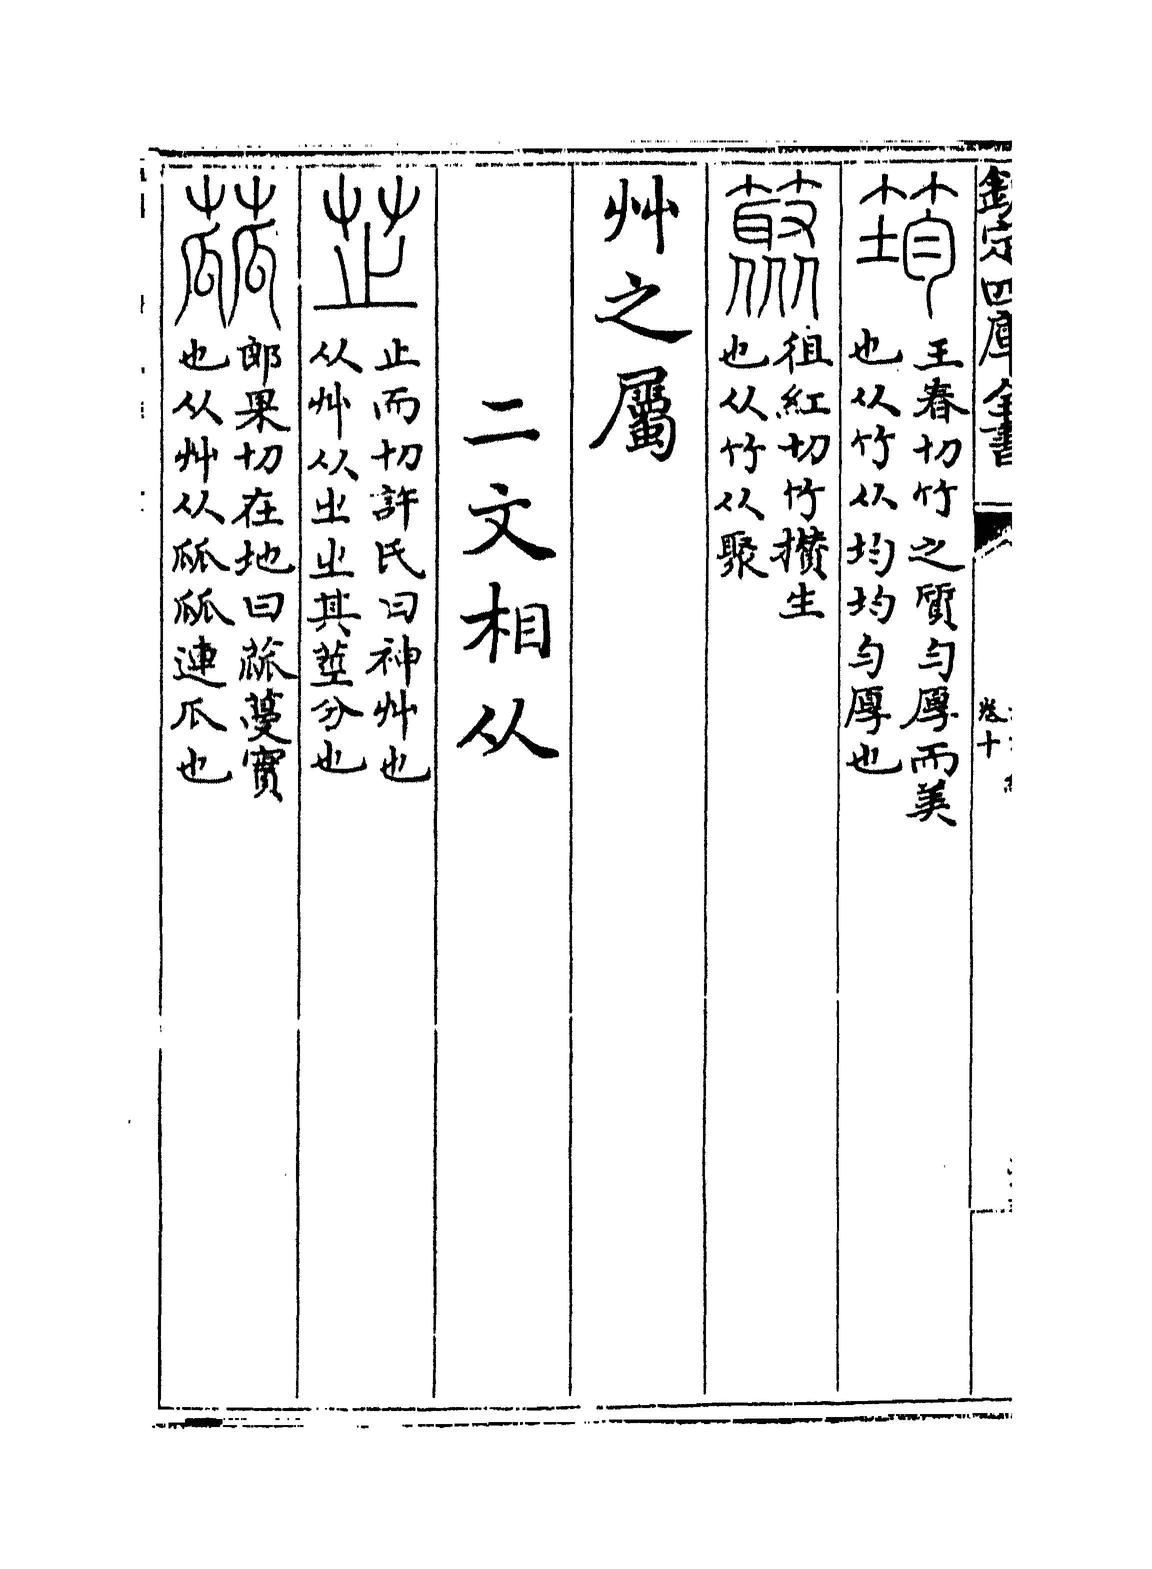 欽定四庫全書 卷十
筠 王春切竹之質勻厚而美
也从竹从均均勻厚也
徂紅切竹攢生
也从竹从聚
艸之屬
二文相从
芝 止而切許氏曰神艸也
从艸从㞢㞢其莖分也
蓏 郎果切在地曰蓏蔓實
也从艸从㼌㼌連瓜也